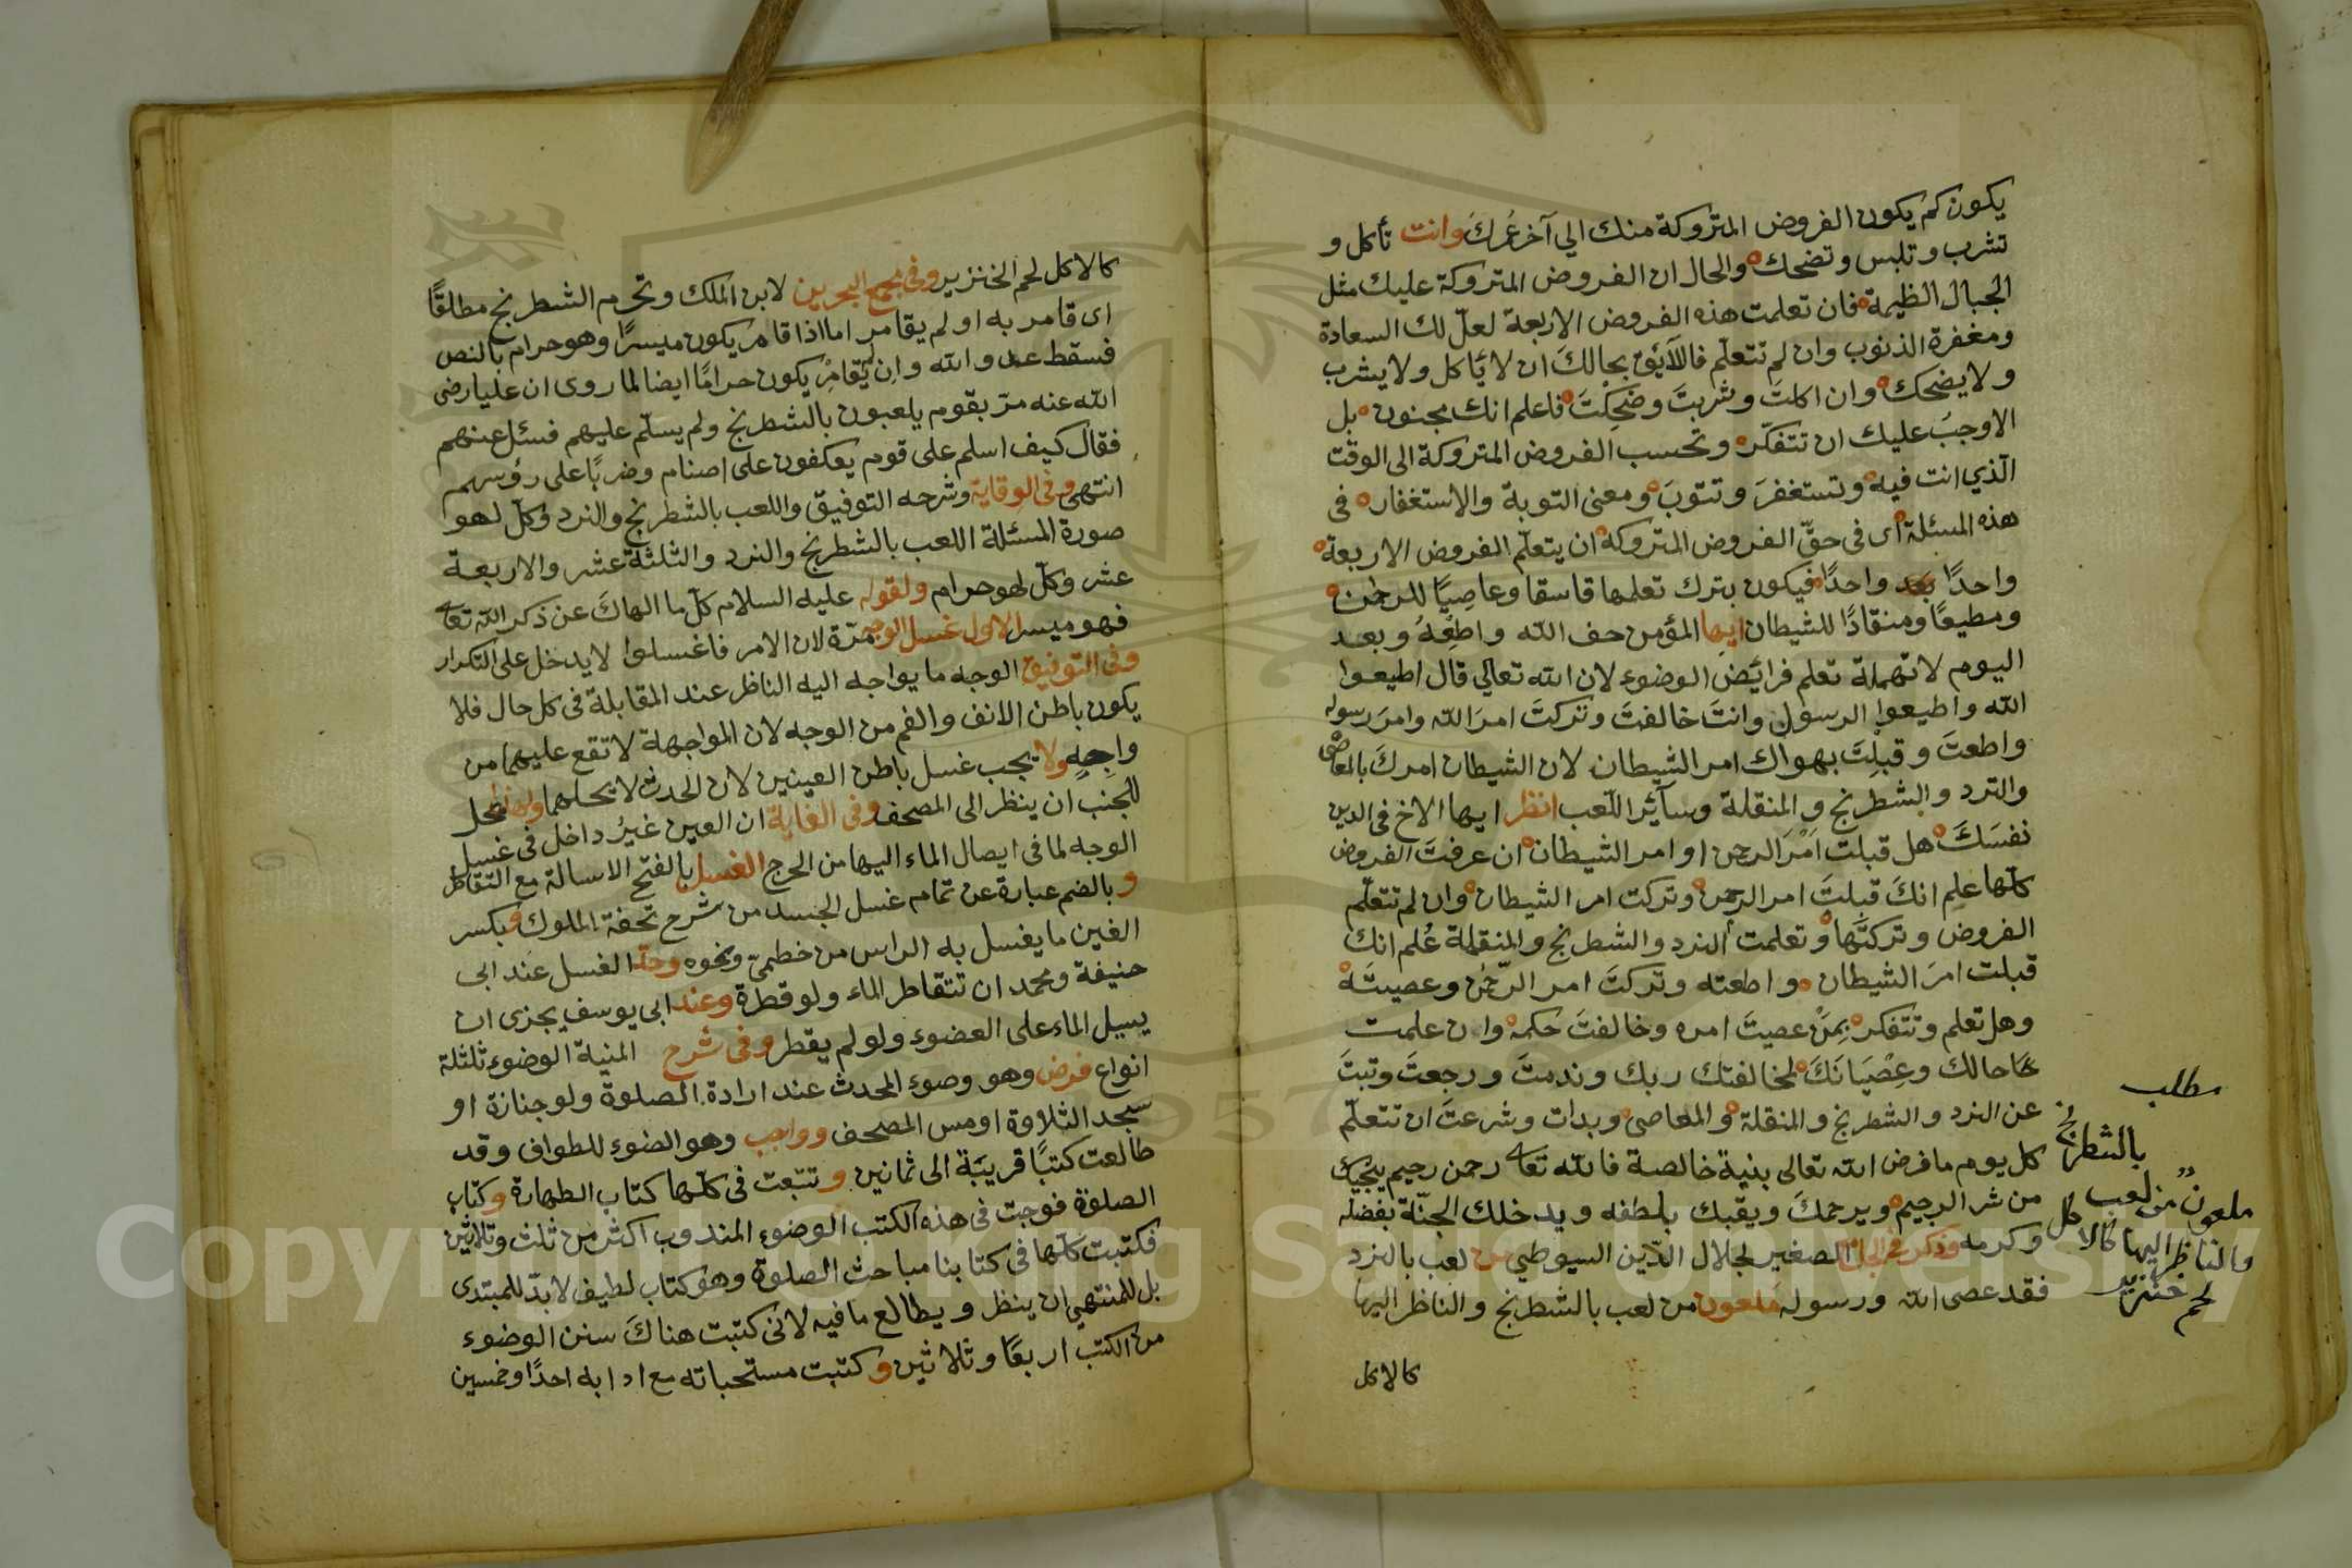 يكون كم يكون الفروض المتروكة منك الي آخر عُمرك وانت تأكل و
تشرب وتلبس وتضحك والحال ان الفروض المتروكة عليك مثل
الجبال العظيمة فان تعلمت هذه الفروض الاربعة لعلّ لك السعادة
ومغفرة الذنوب وان لم تتعلّم فاللآيَق بحالكَ ان لا يَأكل ولا يشرب
ولا يضحك وان اكلتَ وشربتَ وضَحِكْتَ فاعلم انك مجنون بل
الاوجبُ عليك ان تتفكّر وتحسب الفروض المتروكة الى الوقت
الّذي انت فيه وتستغفرَ وتتوبَ ومعنى التوبة والاستغفار فى
هذه المسئلة اى فى حقّ الفروض المتروكة ان يتعلّم الفروض الاربعة
واحدًا بعد واحدًا فيكون بترك تعلمها فاسقا وعاصِيًا للرحمٰن
ومطيعًا ومنقادًا للشيطان ايها المؤمن خف الله واطِعْهُ وبعد
اليوم لا تهملة تعلم فرائَض الوضوء لان الله تعالى قال اطيعوا
الله واطيعوا الرسول وانتَ خالفتَ وتركتَ امرَ الله وامرَ رسوله
واطعتَ وقبلِتَ بهواك امر الشيطان لان الشيطان امركَ بالمعاصى
والنرد والشطرنج والمنقلة وسآئر اللّعب انظر ايها الاخ فى الدين
نفسَكَ هل قبلت اَمْرَ الرحمن او امر الشيطان ان عرفتَ الفروض
كلّها علم انكَ قبلتَ امر الرحمن وتركت امر الشيطان وان لم تتعلّم
الفروض وتركتَها وتعلمت النرد والشطرنج والمنقلة عُلم انك
قبلت امرَ الشيطان واطعته وتركتَ امر الرّحمٰن وعصيتَهْ
وهل تعلم وتتفكر بِمَنْ عصيتَ امره وخالفتَ حكمه وان علمت
حالك وعِصْيَانَكَ لمخالفتك ربك وندمتَ ورجعتَ وتبتَ
عن النرد والشطرنج والمنقلة والمعاصى وبدات وشرعتَ ان تتعلّم
كل يوم ما فرض الله تعالى بنية خالصة فالله تعالى رحمن رحيم ينجيك
من شر الرجيم ويرحمكَ ويقبلك بلطفه ويدخلك الجنّة بفضله
وكرمه وذكر فى الجامع الصغير لجلال الدّين السيوطي من لعب بالنرد
فقد عصى الله ورسوله ملعون من لعب بالشطرنج والناظر اليها
كالاكل
مطلب
ملعون من لعب بالشطرنج
والناظر اليها كالاكل
لحم خنزير
كالاكل لحم الخنزير وفى مجمع البحرين لابن الملك وتحرم الشطرنج مطلقًا
اى قامر به او لم يقامر اما اذا قامر يكون ميسرًا وهو حرام بالنص
فسقط عند والله وان لم يُقامِرْ يكون حرامًا ايضا لما روى ان عليا رضى
الله عنه مرّ بقوم يلعبون بالشطرنج ولم يسلّم عليهم فسئل عنهم
فقال كيف اسلم على قوم يعكفون على اصنام وضربًا على رؤسهم
انتهى وفى الوقاية وشرحه التوفيق واللعب بالشطرنج والنرد وكلّ لهو
صورة المسئلة اللعب بالشطرنج والنرد والثلثة عشر والاربعة
عشر وكلّ لهو حرام ولقوله عليه السلام كلّ ما الهاكَ عن ذكر الله تعالى
فهو ميسر الاول غسل الوجه مرّة لان الامر فاغسلوا لا يدخل على التكرار
وفى التوفيق الوجه ما يواجه اليه الناظر عند المقابلة فى كل حال فلا
يكون باطن الانف والفم من الوجه لان المواجهة لا تقع عليهما من
واجهه ولا يجب غسل باطن العينين لان الحدث لا يحلهما ولهذا يحل
للجنب ان ينظر الى المصحف وفى الغاية ان العين غيرُ داخل فى غسل
الوجه لما فى ايصال الماء اليها من الحرج الغسل بالفتح الاسالة مع التقاطر
وبالضم عبارة عن تمام غسل الجسد من شرح تحفة الملوك وبكسر
الغين ما يغسل به الراس من خطميّ ونحوه وحدّ الغسل عند ابى
حنيفة ومحمد ان تتقاطر الماء ولو قطرة وعند ابى يوسف يجزى ان
يسيل الماء على العضوء ولو لم يقطر وفى شرح المنية الوضوء ثلثة
انواع فرض وهو وصوء المحدث عند ارادة الصلوة ولو جنازة او
سجد التلاوة او مس المصحف وواجب وهو الضوء للطواف وقد
طالعت كتبًا قريبَة الى ثمانين وتتبّعت فى كلّها كتاب الطهارة وكتاب
الصلوة فوجت فى هذه الكتب الوضوء المندوب اكثر من ثلث وثلاثين
فكتبت كلّها فى كتابنا مباحث الصلوة وهو كتاب لطيف لا بدّ للمبتدى
بل للمنتهي ان ينظر ويطالع ما فيه لانى كتبت هناكَ سنن الوضوء
من الكتب اربعًا وثلاثين وكتبت مستحباته مع ادابه احدًا وخمسين
Copyright © King Saud University
1957